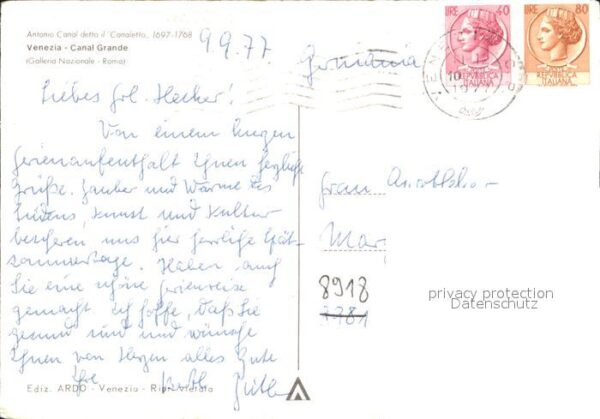 Antonio Canal detto il "Canaletto„ 1697-1768
Venezia - Canal Grande
(Galleria Nazionale - Roma)
9.9.77
Germania
LIRE 40
LIRE 80
REPUBBLICA ITALIANA
REPUBBLICA ITALIANA
VENEZIA
Liebes Frl.
Von einem kurzen
Ferienaufenthalt Ihnen herzliche
Grüße. Zauber und Wärme des
Südens, Kunst und Kultur
bescheren uns hier herrliche Spät-
sommertage. Haben auch
Sie eine schöne Ferienreise
gemacht ich hoffe, daß Sie
gesund sind und wünsche
Ihnen von Herzen alles Gute
Ihre
Frau
Mar
8918
7781
privacy protection
Datenschutz
Ediz. ARDO - Venezia - Ripr. vietata